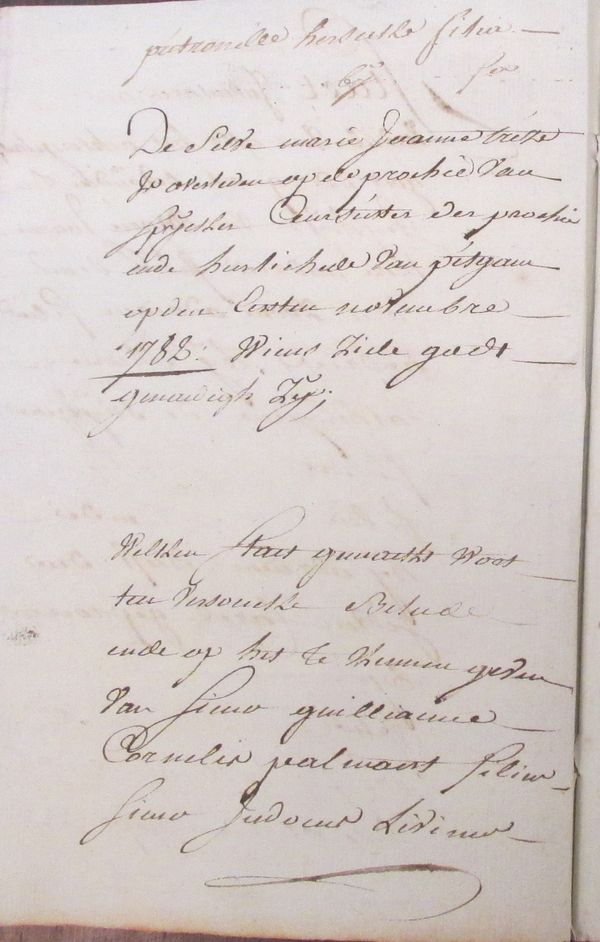 petronelle hersucke filia
by
De Selve marie Joanne trétte
Is overleden op de prochie Van
Spÿcker Ceurstuter der prochie
ende heerlichede Van pitgam
op den Eersten novembre
1782: Wiens Ziele godt
genaedigh Zÿ;
Welken Staet gemaeckt Wort
ten Versoucke Beleede
ende op het te kennen geven
Van Simo guilliamme
Cornelis palmaert filius
Simo Judocus Livinus